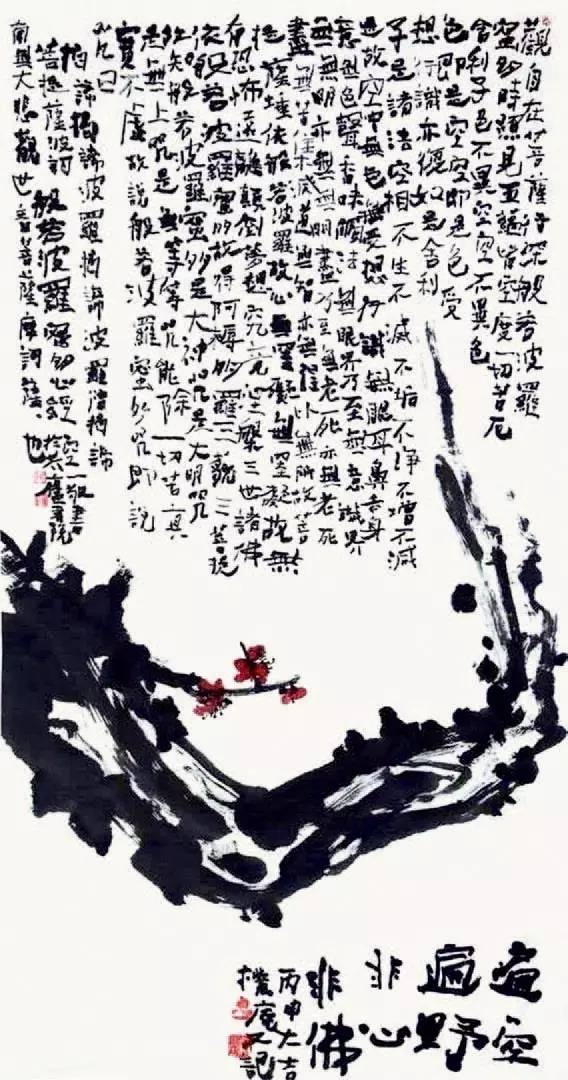 觀自在菩薩行深般若波羅
蜜多時照見五蘊皆空度一切苦厄
舍利子色不異空空不異色
色即是空空即是色受
想行識亦復如是舍利
子是諸法空相不生不滅不垢不淨不增不減
是故空中無色無受想行識無眼耳鼻舌身
意無色聲香味觸法無眼界乃至無意識界
無無明亦無無明盡乃至無老死亦無老死
盡無苦集滅道無智亦無得以無所故菩
提薩埵依般若波羅故心無罣礙無罣礙故無
有恐怖遠離顛倒夢想究竟涅槃三世諸佛
依般若波羅蜜多故得阿耨多羅三藐三菩提
故知般若波羅蜜多是大神咒是大明咒
是無上咒是無等等咒能除一切苦真
實不虛故說般若波羅蜜多咒即說
咒曰
揭諦揭諦波羅揭諦波羅僧揭諦
菩提薩婆訶 般若波羅蜜多心經 空一敬書
南無大悲觀世音菩薩摩訶薩
遍空
遍野
非心
非佛
丙申大吉
樸庵又記